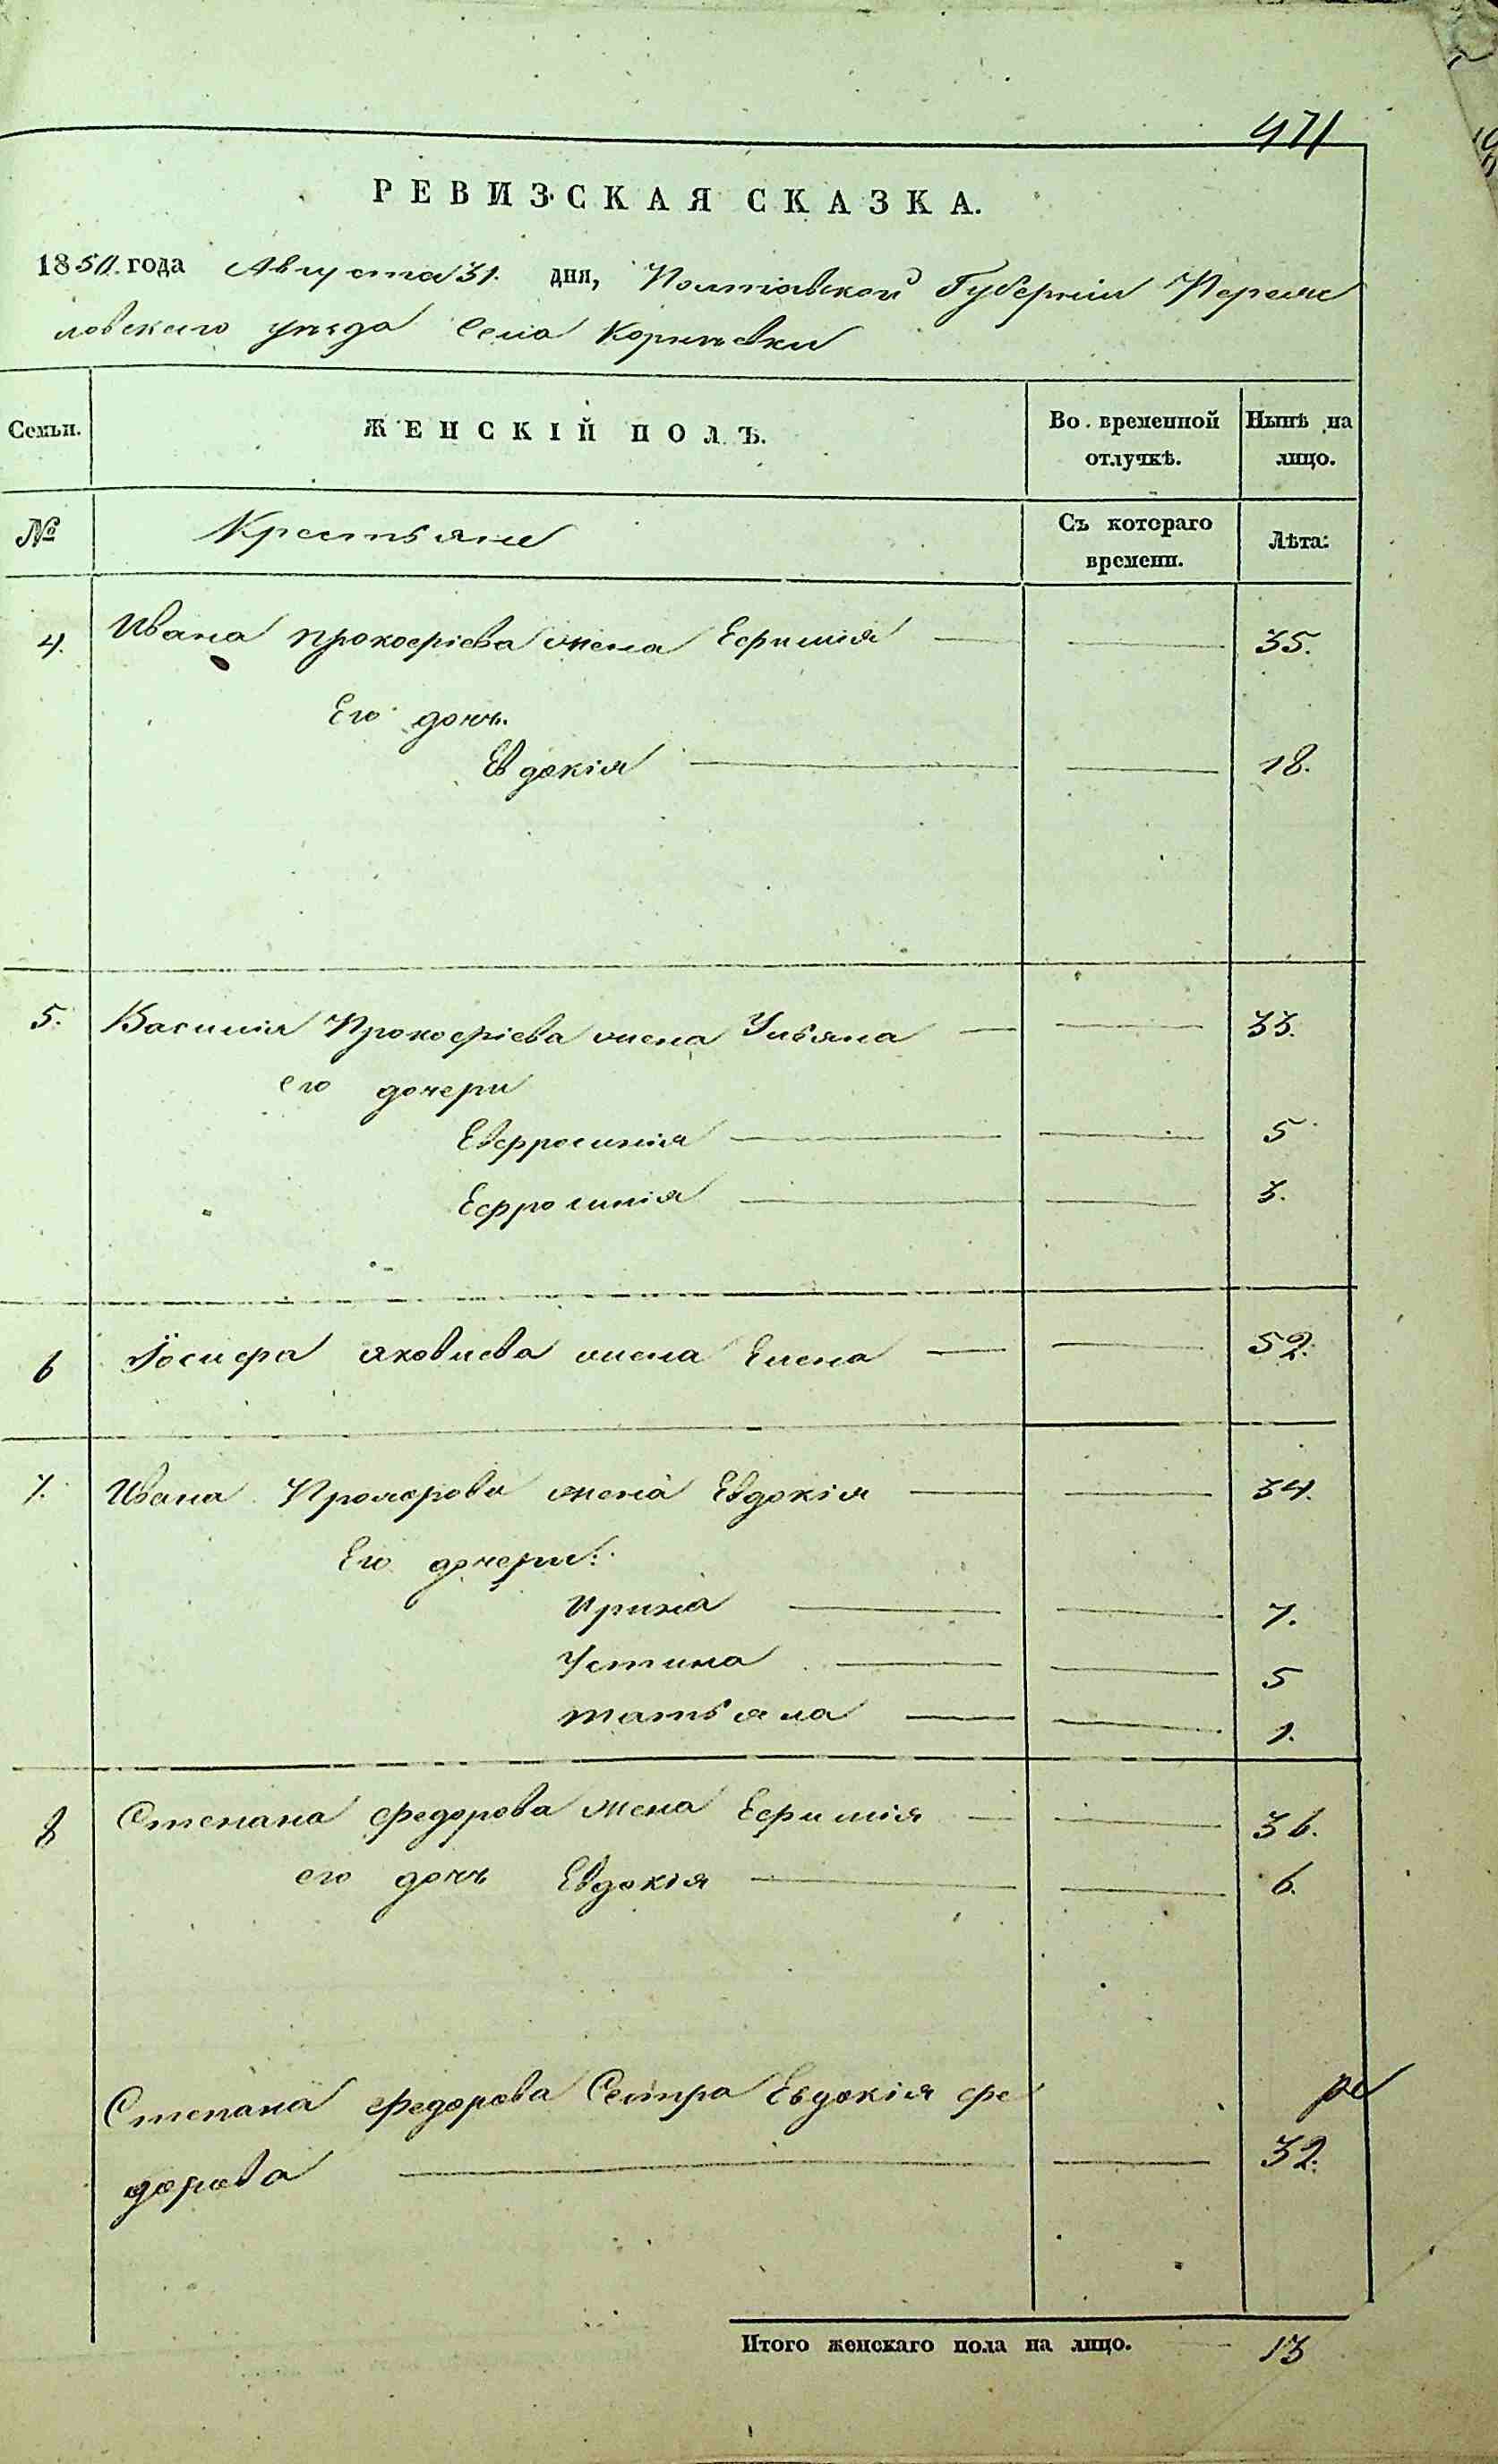 471
РЕВИЗСКАЯ СКАЗКА.
1850. года Августа 31. дня, Полтавской Губерніи Переяс
ловскаго уѣзда Села Корнѣевки
Семьи. ЖЕНСКІЙ ПОЛЪ. Во временной отлучкѣ. Нынѣ на лицо.
№ Крестьяне Съ котораго времени. Лѣта:
4. Ивана Прокофіева жена Ефимія 35.
Его дочь.
Евдокія 18.
5. Василія Прокофіева жена Ульяна 33.
его дочери
Евфросинія 5
Ефросинія 3.
6 Іосифа Яковлева жена Елена 52.
7. Ивана жена Евдокія 34.
Его дочери:
Ирина 7.
Устина 5
Татьяна 1.
8 Степана Федорова жена Ефимія 36.
его дочь Евдокія 6.
Степана Федорова Сестра Евдокія Фе
дорова 32.
Итого женскаго пола на лицо. 13